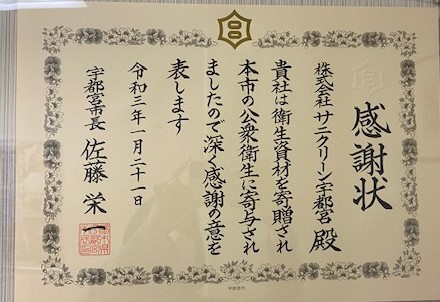 感謝状
株式会社サニクリーン宇都宮 殿
貴社は衛生資材を寄贈され
本市の公衆衛生に寄与され
ましたので深く感謝の意を
表します
令和三年一月二十一日
宇都宮市長 佐藤栄一